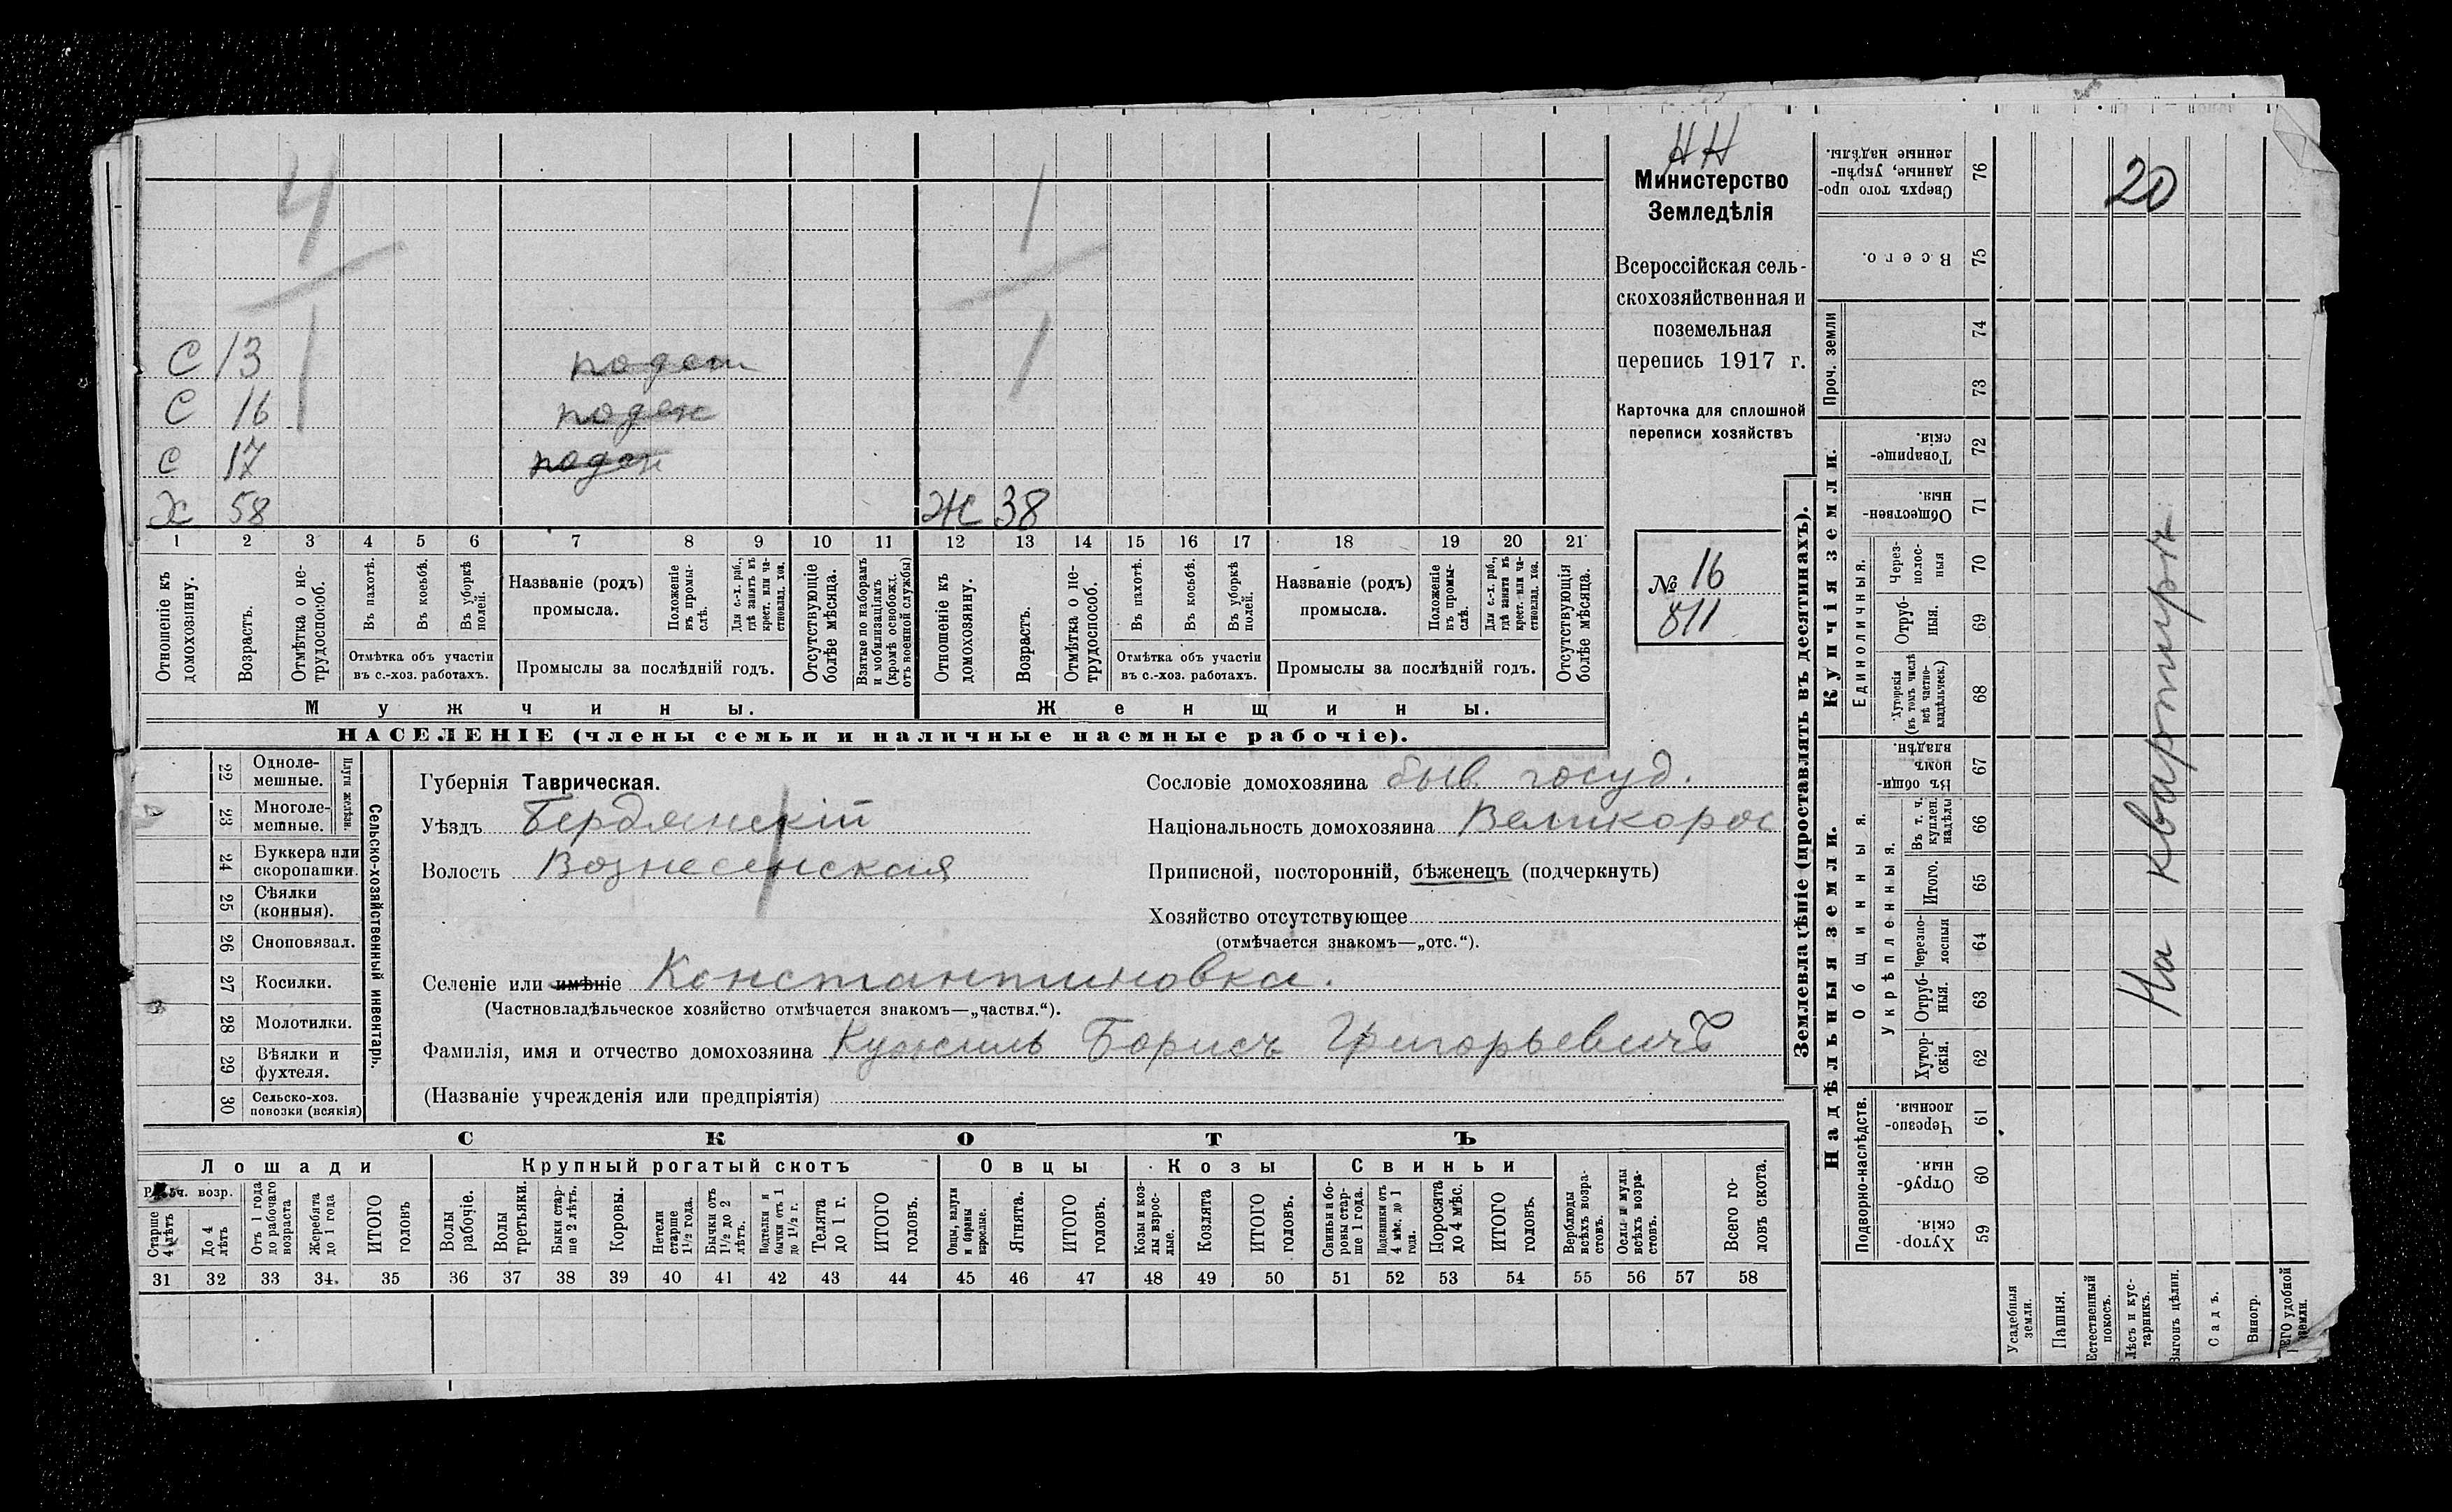 НН
Министерство
Земледѣлія
Всероссійская сель-
скохозяйственная и
поземельная
перепись 1917 г.
Карточка для сплошной
переписи хозяйствъ
№ 16
811
4
1
1
1
С 13 поден
С 16 поден
С 17 поден
Х 58
Ж 38
1 2 3 4 5 6 7 8 9 10 11 12 13 14 15 16 17 18 19 20 21
Отношеніе къ домохозяину.
Возрастъ.
Отмѣтка о не-трудоспособ.
Въ пахотѣ.
Въ косьбѣ.
Въ уборкѣ полей.
Отмѣтка объ участіи
въ с.-хоз. работахъ.
Названіе (родъ)
промысла.
Положеніе въ промы-слѣ.
Для с.-х. раб., гдѣ занятъ въ крест. или ча-стновлад. хоз.
Промыслы за послѣдній годъ.
Отсутствующіе болѣе мѣсяца.
Взятые по наборамъ и мобилизаціямъ (кромѣ освобожд. отъ военной службы)
Отношеніе къ домохозяину.
Возрастъ.
Отмѣтка о не-трудоспособ.
Въ пахотѣ.
Въ косьбѣ.
Въ уборкѣ полей.
Отмѣтка объ участіи
въ с.-хоз. работахъ.
Названіе (родъ)
промысла.
Положеніе въ промы-слѣ.
Для с.-х. раб., гдѣ занята въ крест. или ча-стновлад. хоз.
Промыслы за послѣдній годъ.
Отсутствующія болѣе мѣсяца.
Мужчины.
Женщины.
НАСЕЛЕНІЕ (члены семьи и наличные наемные рабочіе).
Сельско-хозяйственный инвентарь.
Плуги желѣзн.
22 Одноле-мешные.
23 Многоле-мешные.
24 Буккера или скоропашки.
25 Сѣялки (конныя).
26 Сноповязал.
27 Косилки.
28 Молотилки.
29 Вѣялки и фухтеля.
30 Сельско-хоз. повозки (всякія)
Губернія Таврическая.
Уѣздъ Бердянскій
Волость Вознесенская
Сословіе домохозяина быв. госуд.
Національность домохозяина Великорос
Приписной, посторонній, бѣженецъ (подчеркнуть)
Хозяйство отсутствующее
(отмѣчается знакомъ—„отс.“).
Селеніе или имѣніе Константиновка.
(Частновладѣльческое хозяйство отмѣчается знакомъ—„частвл.“).
Фамилія, имя и отчество домохозяина Борисъ Григорьевичъ
(Названіе учрежденія или предпріятія)
СКОТЪ
Лошади
Крупный рогатый скотъ
Овцы
Козы
Свиньи
Рабоч. возр.
Старше 4 лѣтъ
До 4 лѣтъ
Отъ 1 года до рабочаго возраста
Жеребята до 1 года
ИТОГО головъ
Волы рабочіе.
Волы третьяки.
Быки стар-ше 2 лѣтъ.
Коровы.
Нетели старше 1½ года.
Бычки отъ 1½ до 2 лѣтъ.
Подтелки и бычки отъ 1 до 1½ г.
Телята до 1 г.
ИТОГО головъ.
Овцы, валухи и бараны взрослые.
Ягнята.
ИТОГО головъ.
Козы и коз-лы взрос-лые.
Козлята
ИТОГО головъ.
Свиньи и бо-ровы стар-ше 1 года.
Подсвинки отъ 4 мѣс. до 1 года.
Поросята до 4 мѣс.
ИТОГО головъ.
Верблюды всѣхъ возра-стовъ.
Ослы и мулы всѣхъ возра-стовъ.
Всего го-ловъ скота.
31 32 33 34. 35 36 37 38 39 40 41 42 43 44 45 46 47 48 49 50 51 52 53 54 55 56 57 58
Землевладѣніе (проставлять въ десятинахъ).
Надѣльныя земли.
Купчія земли.
Проч. земли
Подворно-наслѣдств.
Общинныя.
Укрѣпленныя.
Единоличныя.
Сверхъ того про-данные, укрѣп-ленные надѣлы. 76
Всего. 75
74
73
Товарище-скія. 72
Обществен-ныя. 71
Через-полос-ныя 70
Отруб-ныя. 69
Хуторскія (въ томъ числѣ всѣ частно-владѣльческ.) 68
Въ общин-номъ владѣн. 67
Въ т. ч. куплен. надѣлы 66
Итого. 65
Черезпо-лосныя 64
Отруб-ныя. 63
Хутор-скія. 62
Черезпо-лосныя. 61
Отруб-ныя. 60
Хутор-скія. 59
Усадебныя земли.
Пашня.
Естественный покосъ.
Лѣсъ и кус-тарникъ.
Выгонъ цѣлин.
Садъ.
Виногр.
20
На квартирѣ